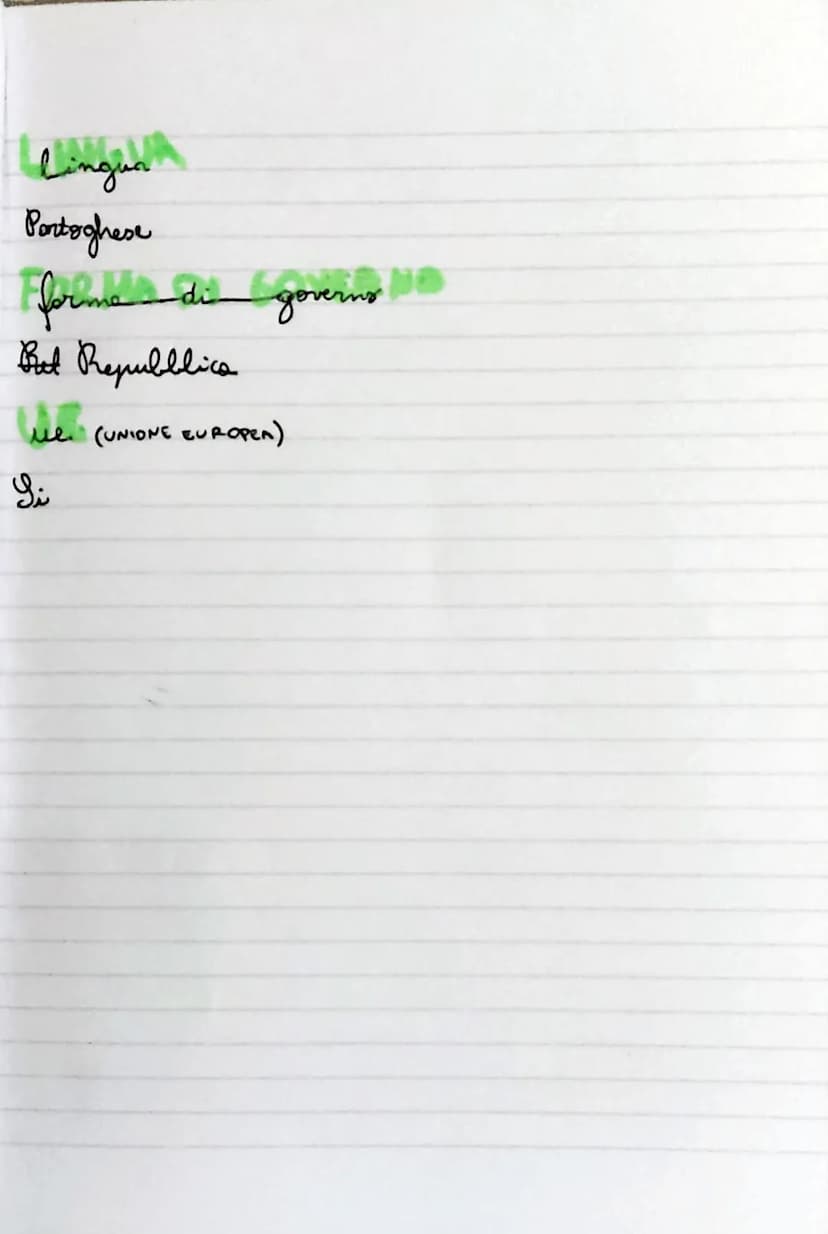 LINGUA
Lingua
Portoghese
FORMA DI GOVERNO
forma di governo
Repubblica
UE
ue (UNIONE EUROPEA)
Si